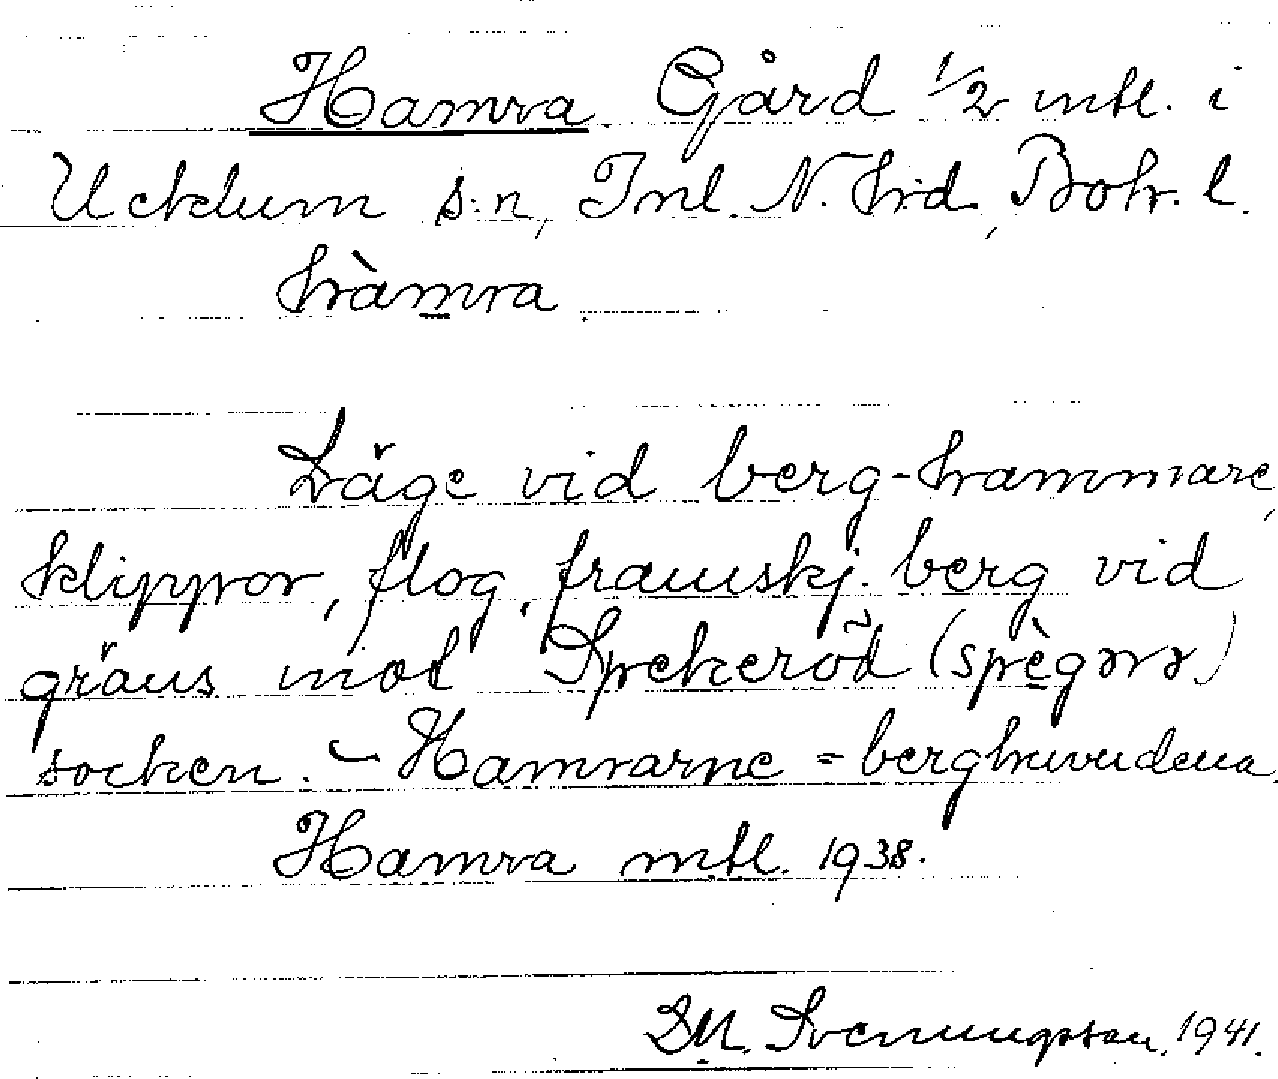 Hamra Gård 1/2 mtl. i
Ucklum s:n, Inl. N. hd, Boh. l.
hàmra
Läge vid berg-hammare,
klippor, flog, framskj. berg vid
gräns mot Spekeröd (spègərə)
socken. – Hamrarne = berghuvudena.
Hamra mtl. 1938.
D.M. Svenungsson. 1941.